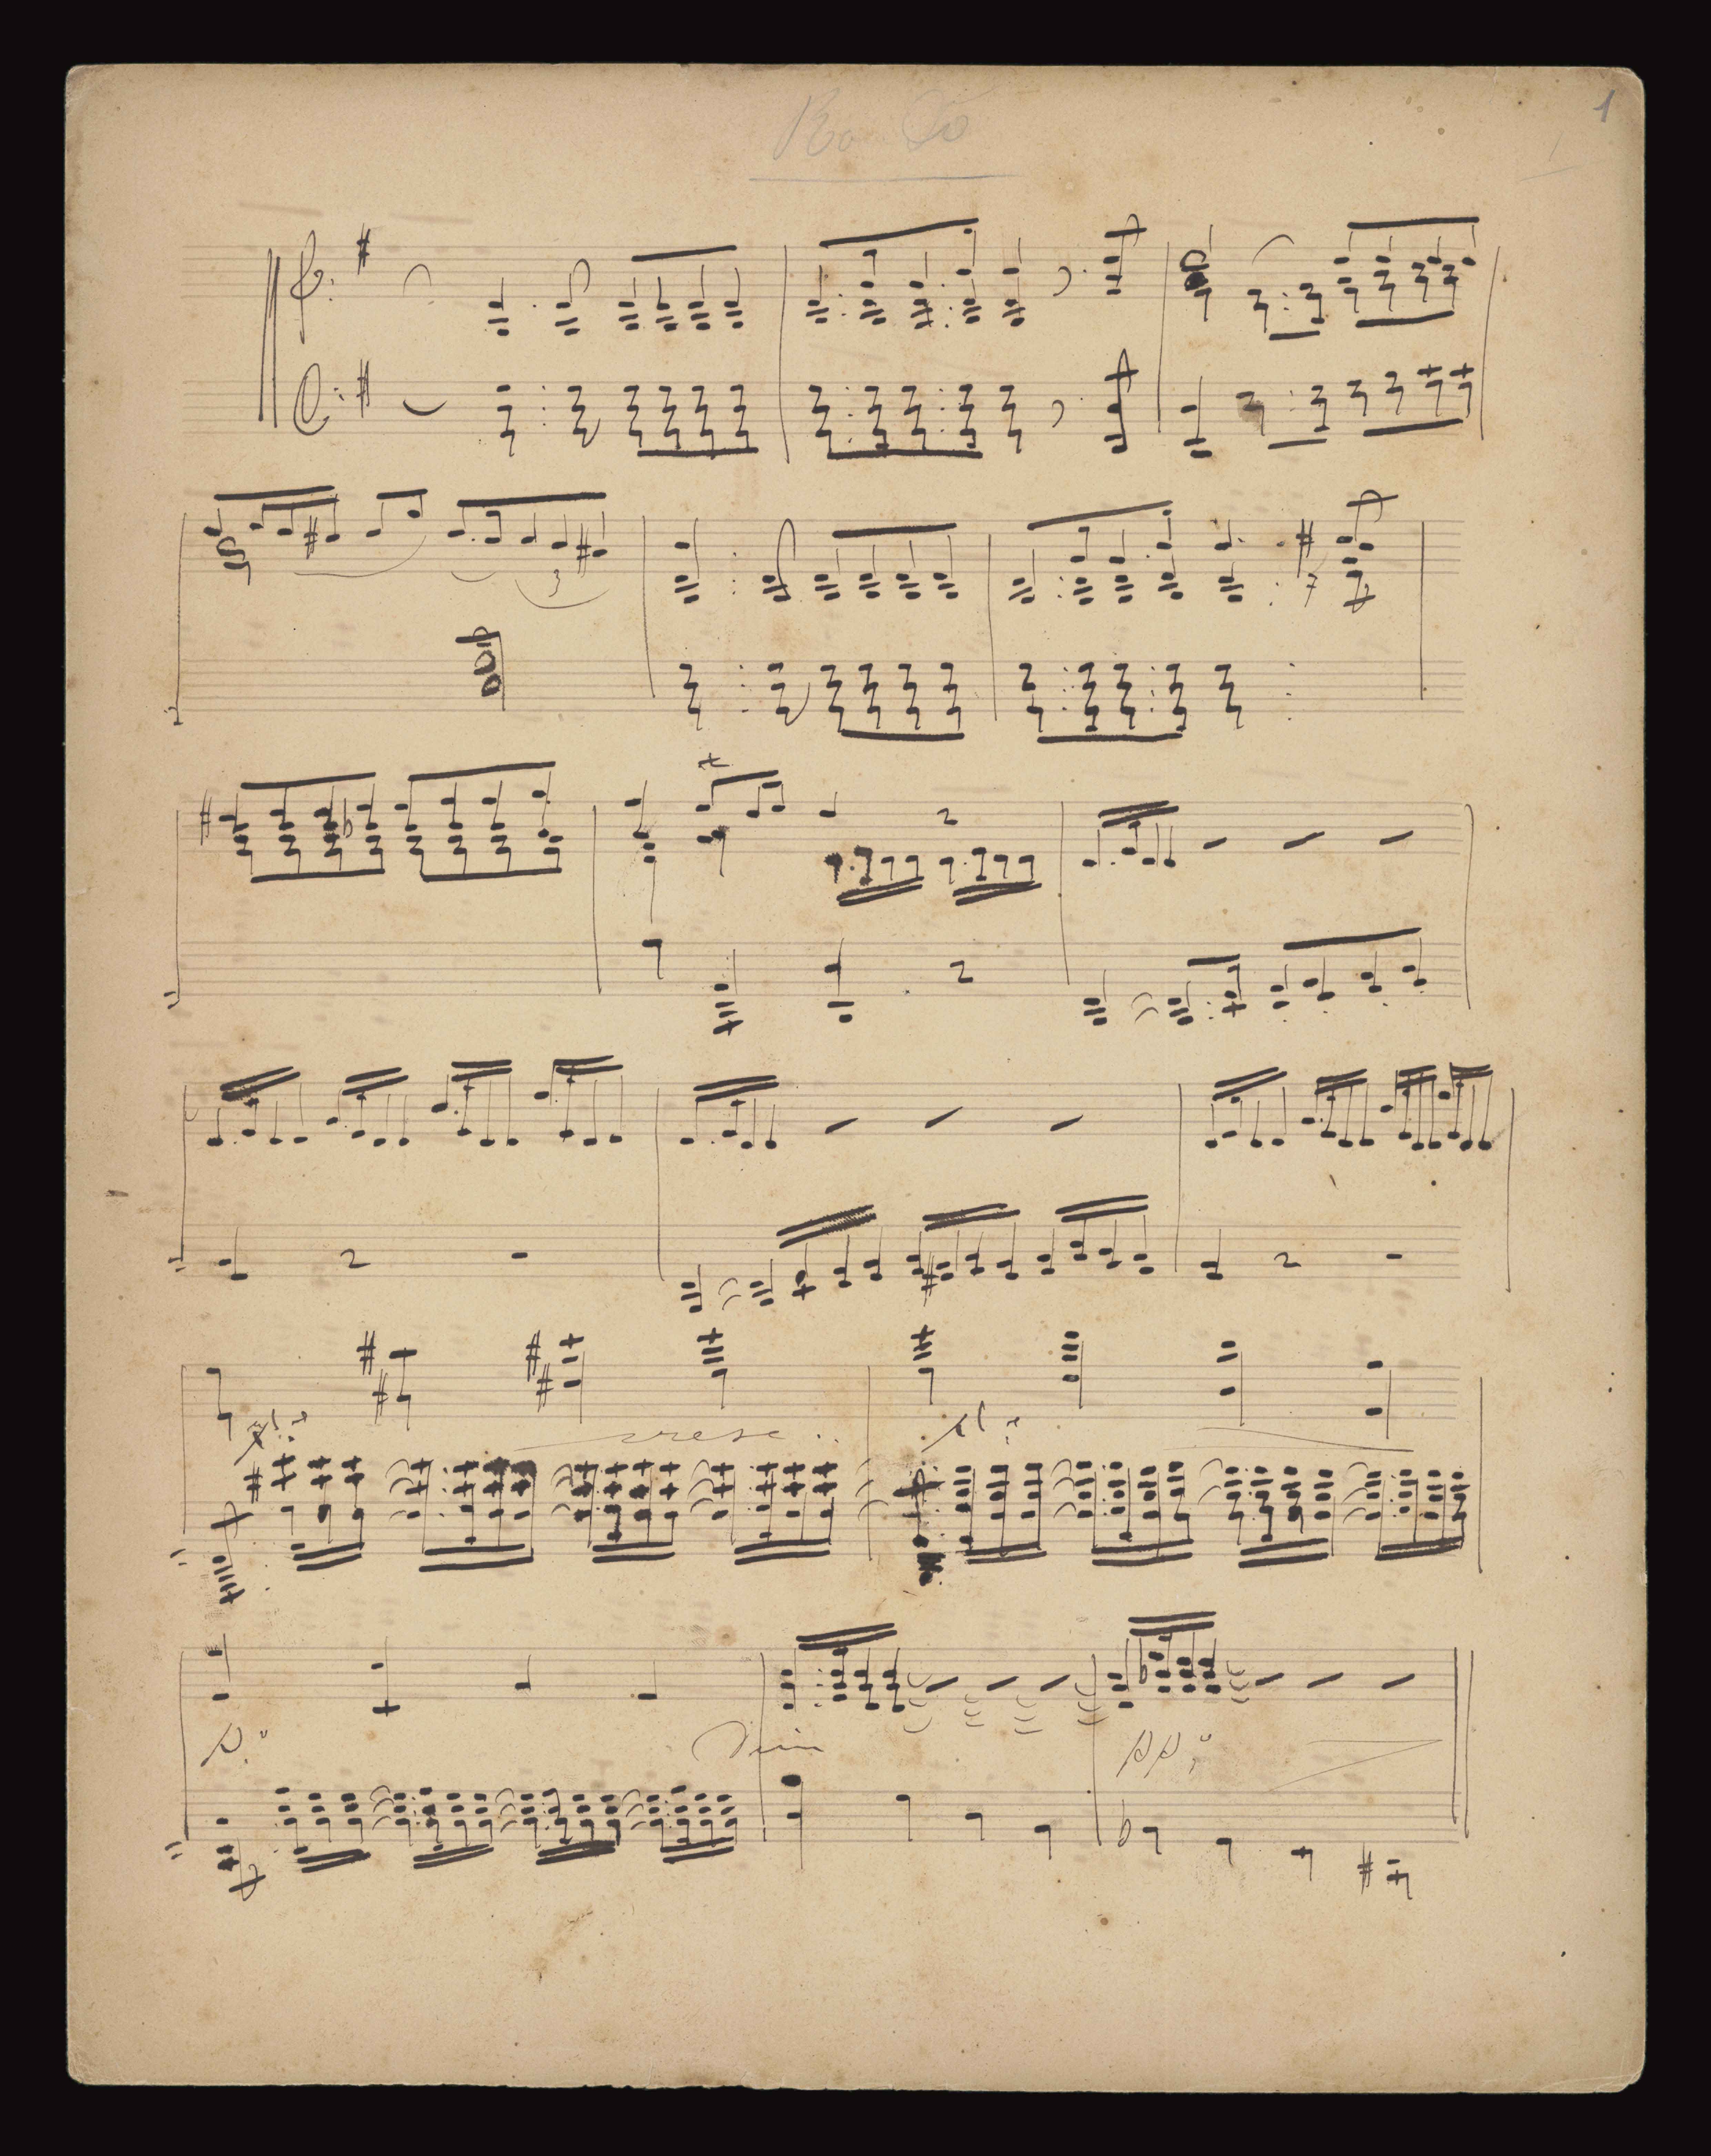 Rondò
1
1
3
cresc..
p.
Dim
pp: